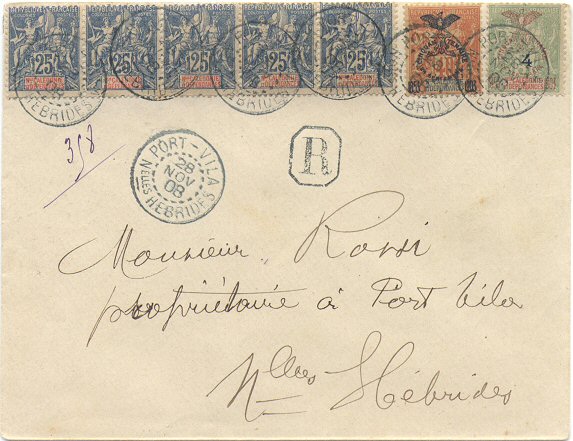 25 25 25 25 25
4
HEBRIDES
358
PORT-VILA
28
NOV
08
Nelles HEBRIDES
R
Monsieur Rossi
propriétaire à Port Vila
Nlles Hébrides